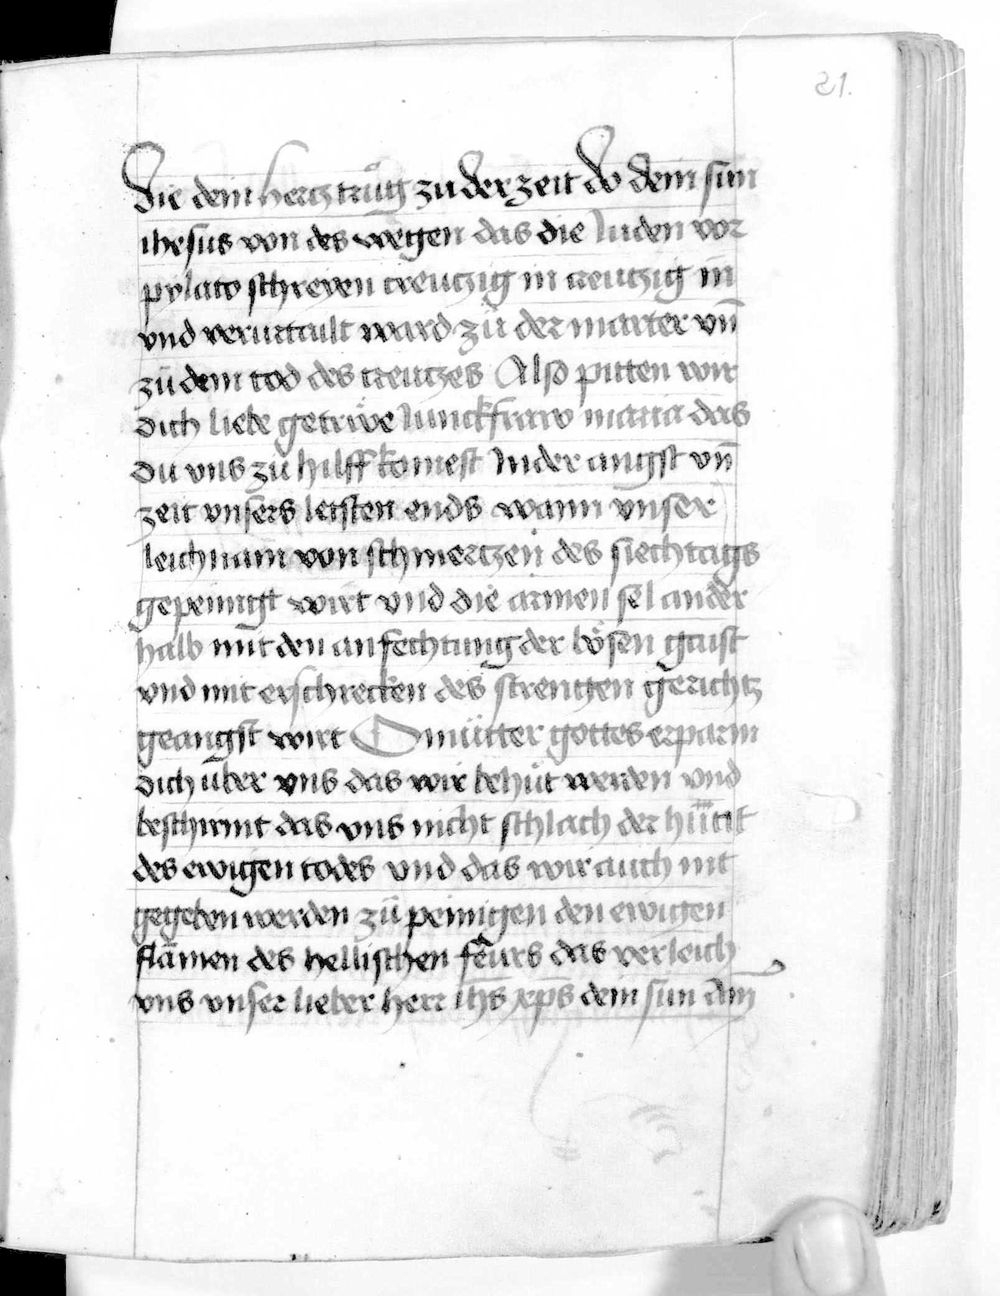 21.
die dein hertz trůg zu der zeit do dein sun
ihesus von des wegen das die Juden vor
pylato schreyen creutzig in creutzig in
vnd verurtailt ward zů der marter vn̄
zů dem tod des creutzes Also pitten wir
dich liebe getrüwe Junckfraw maria das
du vns zů hilff komest In der angst vn̄
zeit vnsers letsten ends wann vnser
leichnam von schmertzen des siechtags
gepeinigt wirt vnd die armen sel ander
halb mit den anfechtung der bösen gaist
vnd mit erschrecken des strengen gerichtz
geangst wirt O můtter gottes erparm
dich über vns das wir behüt werden vnd
beschirmt das vns nicht schlach der
des ewigen todes vnd das wir auch nit
gegeben werden zů peinigen den ewigen
flāmen des hellischen feürs das verleich
vns vnser lieber herr ihs xp̄s dein sun Am̄